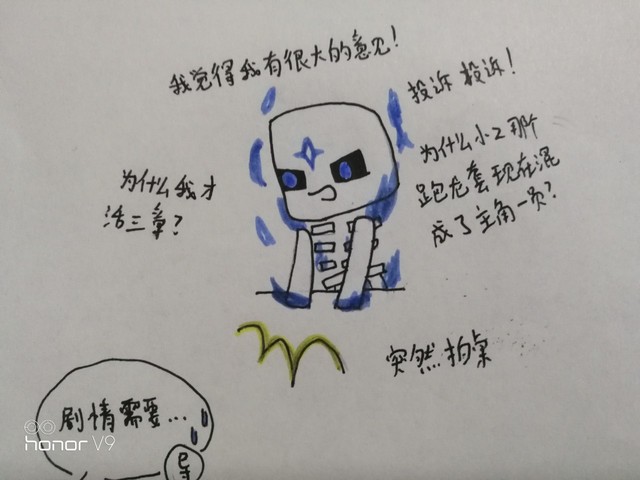 我觉得我有很大的意见！
投诉 投诉！
为什么小2那个
跑龙套现在混
成了主角一员？
为什么我才
活三章？
突然拍桌
剧情需要...
导
honor V9